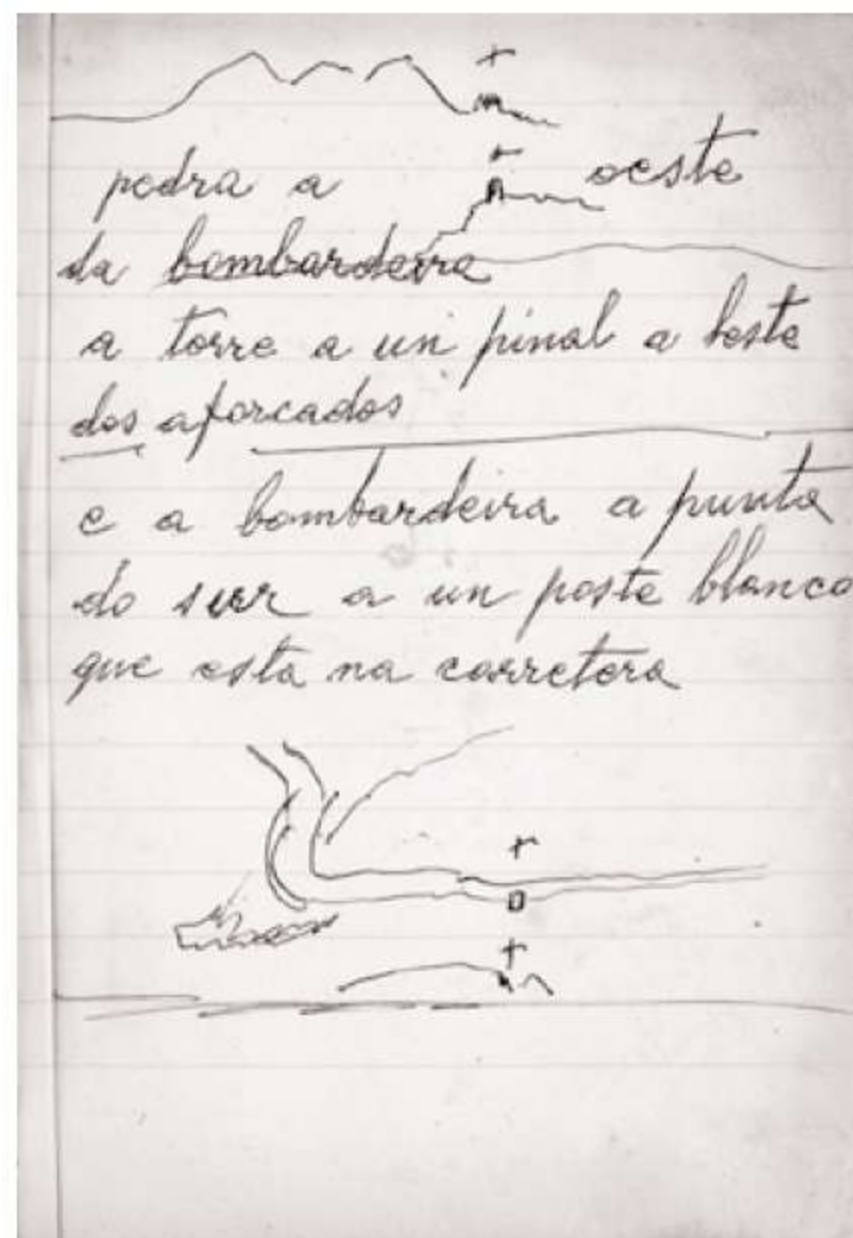 pedra a oeste
da bombardeira
a torre a un pinal a leste
dos aforcados
e a bombardeira a punta
do suer a un poste blanco
que esta na carretera